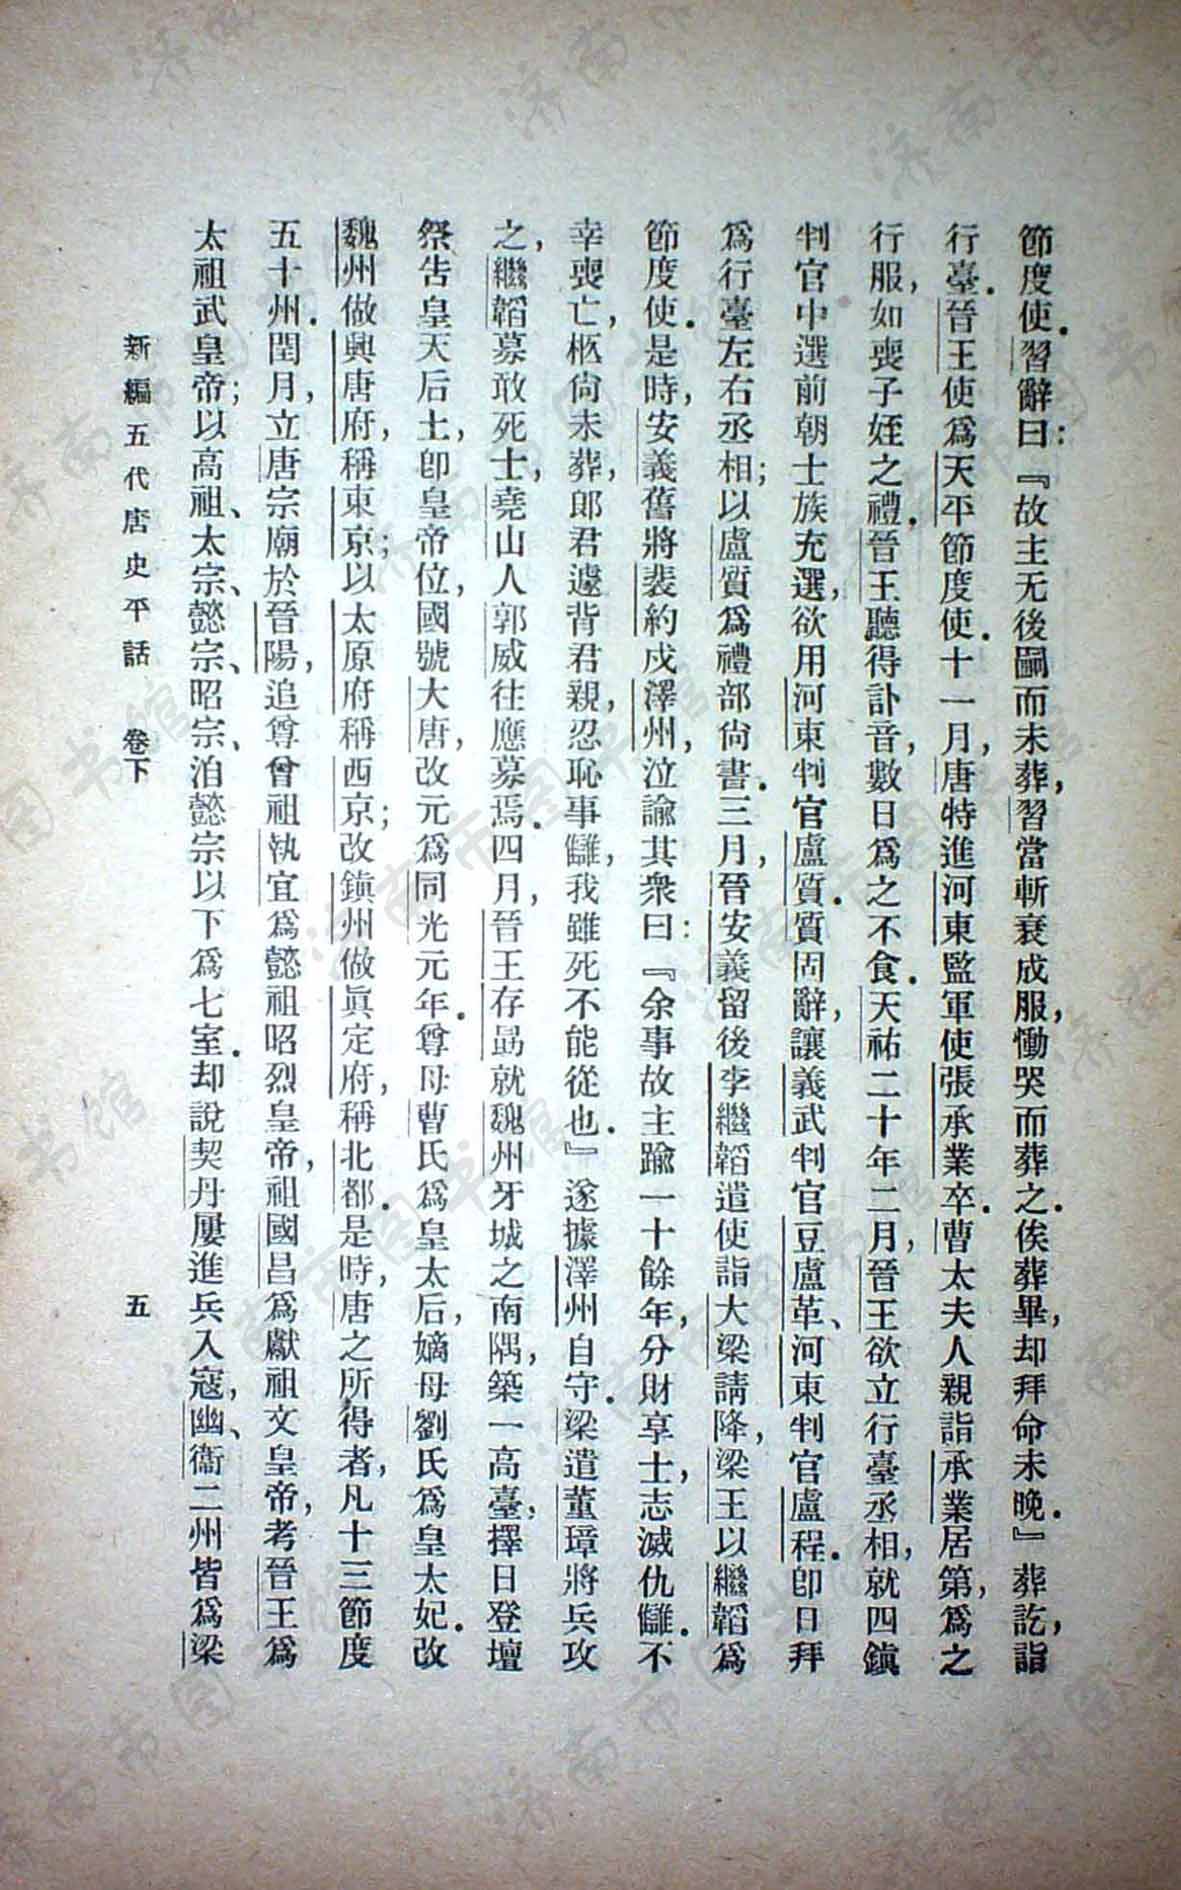 節度使．習辭曰：『故主无後嗣而未葬，習當斬衰成服，慟哭而葬之．俟葬畢，却拜命未晚．』葬訖，詣
行臺．晉王使爲天平節度使．十一月，唐特進河東監軍使張承業卒．曹太夫人親詣承業居第，爲之
行服，如喪子姪之禮．晉王聽得訃音，數日爲之不食．天祐二十年二月，晉王欲立行臺丞相，就四鎮
判官中選前朝士族充選，欲用河東判官盧質．質固辭，讓義武判官豆盧革、河東判官盧程．卽日拜
爲行臺左右丞相；以盧質爲禮部尙書．三月，晉安義留後李繼韜遣使詣大梁請降，梁王以繼韜爲
節度使．是時，安義舊將裴約戍澤州，泣諭其衆曰：『余事故主踰一十餘年，分財享士，志滅仇讎．不
幸喪亡，柩尙未葬，郎君遽背君親，忍恥事讎，我雖死不能從也．』遂據澤州自守．梁遣董璋將兵攻
之，繼韜募敢死士，堯山人郭威往應募焉．四月，晉王存勗就魏州牙城之南隅，築一高臺，擇日登壇
祭告皇天后土，卽皇帝位，國號大唐，改元爲同光元年．尊母曹氏爲皇太后，嫡母劉氏爲皇太妃．改
魏州做興唐府，稱東京；以太原府稱西京；改鎮州做眞定府，稱北都．是時，唐之所得者，凡十三節度
五十州．閏月，立唐宗廟於晉陽，追尊曾祖執宜爲懿祖昭烈皇帝，祖國昌爲獻祖文皇帝，考晉王爲
太祖武皇帝；以高祖、太宗、懿宗、昭宗、洎懿宗以下爲七室．却說契丹屢進兵入寇，幽、衞二州皆爲梁
新編五代唐史平話 卷下 五
济南市图书馆